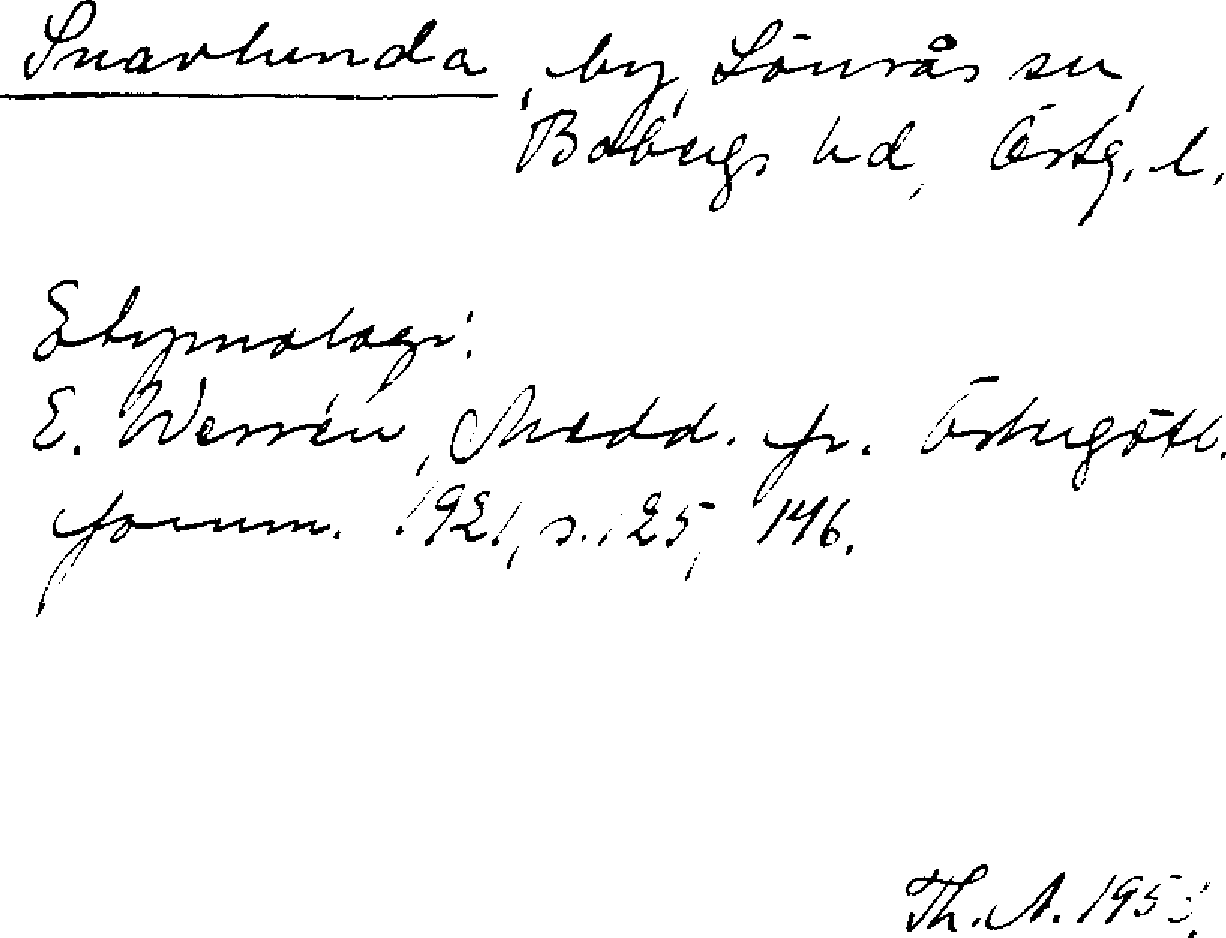 Snavlunda, by, Lönsås sn,
Bobergs hd, Östg. l.
Etymologi:
E. Wessén, Medd. fr. Östergötl.
fornm. 1921, s. 25, 146.
Th. A. 195